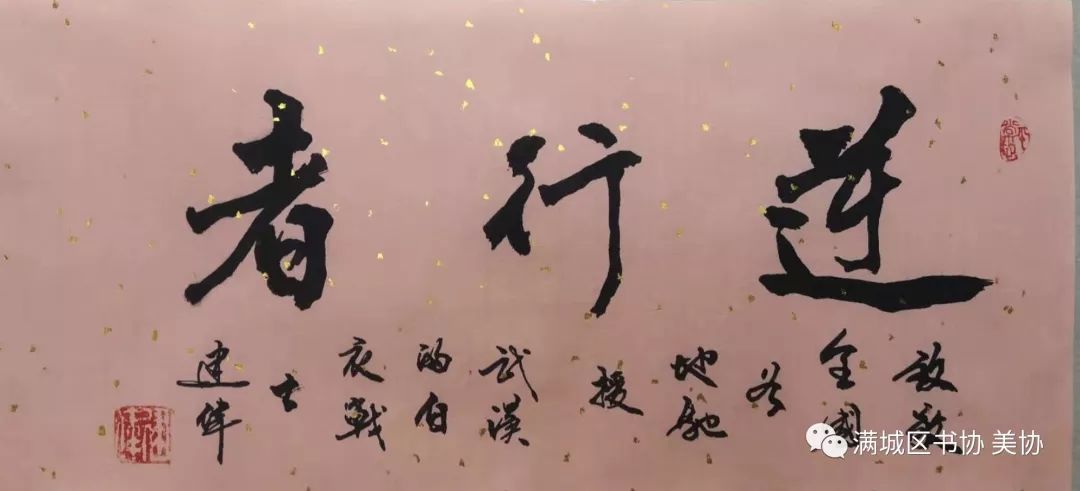 逆行者
致敬
全國
各
地馳
援
武漢
的白
衣戰
士
建偉
满城区书协 美协